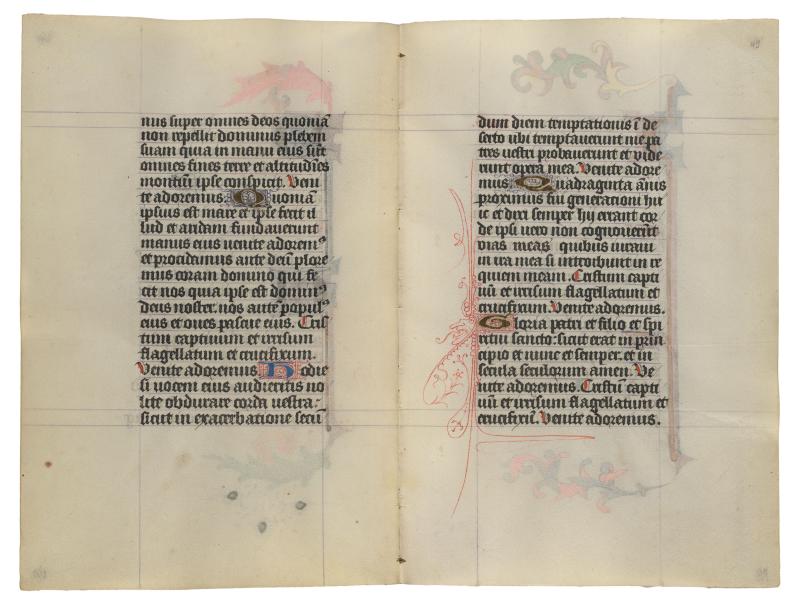 nus super omnes deos quoniā
non repellit dominus plebem
suam quia in manu eius sūt
omnes fines terre et altitudīes
montiū ipse conspicit. Veni
te adoremus. Quoniā
ipsius est mare et ipse fecit il
lud et aridam fundaverunt
manus eius venite adoremꝰ
et procidamus ante deū plore
mus coram domino qui fe
cit nos quia ipse est dominꝰ
deus noster. nos autē populꝰ
eius et oves pascue eius. Cris
tum captivum et irrisum
flagellatum et crucifixum.
Venite adoremus. Hodie
si vocem eius audieritis no
lite obdurare corda vestra:
sicut in exacerbatione secū
49
dum diem temptationis ī de
serto ubi temptaverunt me pa
tres vestri probaverunt et vide
runt opera mea. Venite adore
mus. Quadraginta ānis
proximus fui generationi hu
ic et dixi semper hy errant cor
de ipsi vero non cognoverūt
vias meas quibus iuravi
in ira mea si introibunt in re
quiem meam. Cristum capti
vū et irrisum flagellatum et
crucifixum. Venite adoremus.
Gloria patri et filio et spi
ritui sancto: sicut erat in prin
cipio et nunc et semper. et in
secula seculorum amen. Ve
nite adoremus. Cristum capti
vū et irrisum flagellatum et
crucifixū. Venite adoremus.